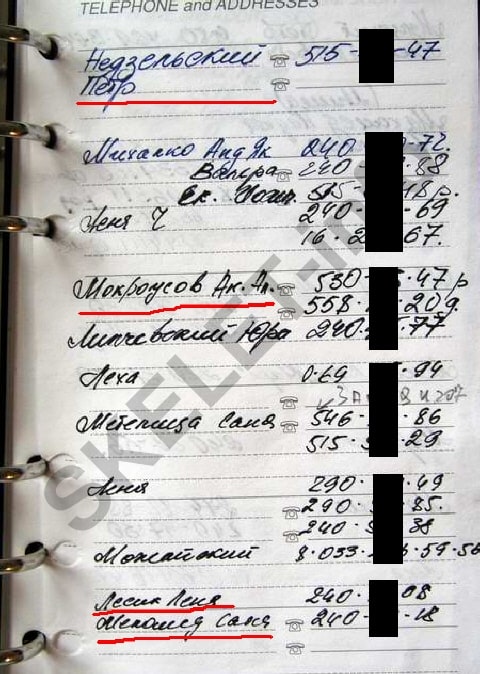 TELEPHONE and ADDRESSES
Недзельский 515- -47
Петр
Михалко Анд Як 240 -72.
Валюра 240 88
515- 18 р.
Женя Ч 240 -69
16. 2 67.
Мокроусов Ак. Ак. 530- .47 р
558. .20 д.
Липчевский Юра 240. .77
Леха 0.69 .94
Метелица Саня 546 - 86
515. 29
Леня 290. .49
290 85.
240 38
Можайский 8.033. 6.59.56
Лесик Леня 240 08
Меномед Саня 240 - -18
SKELET-info